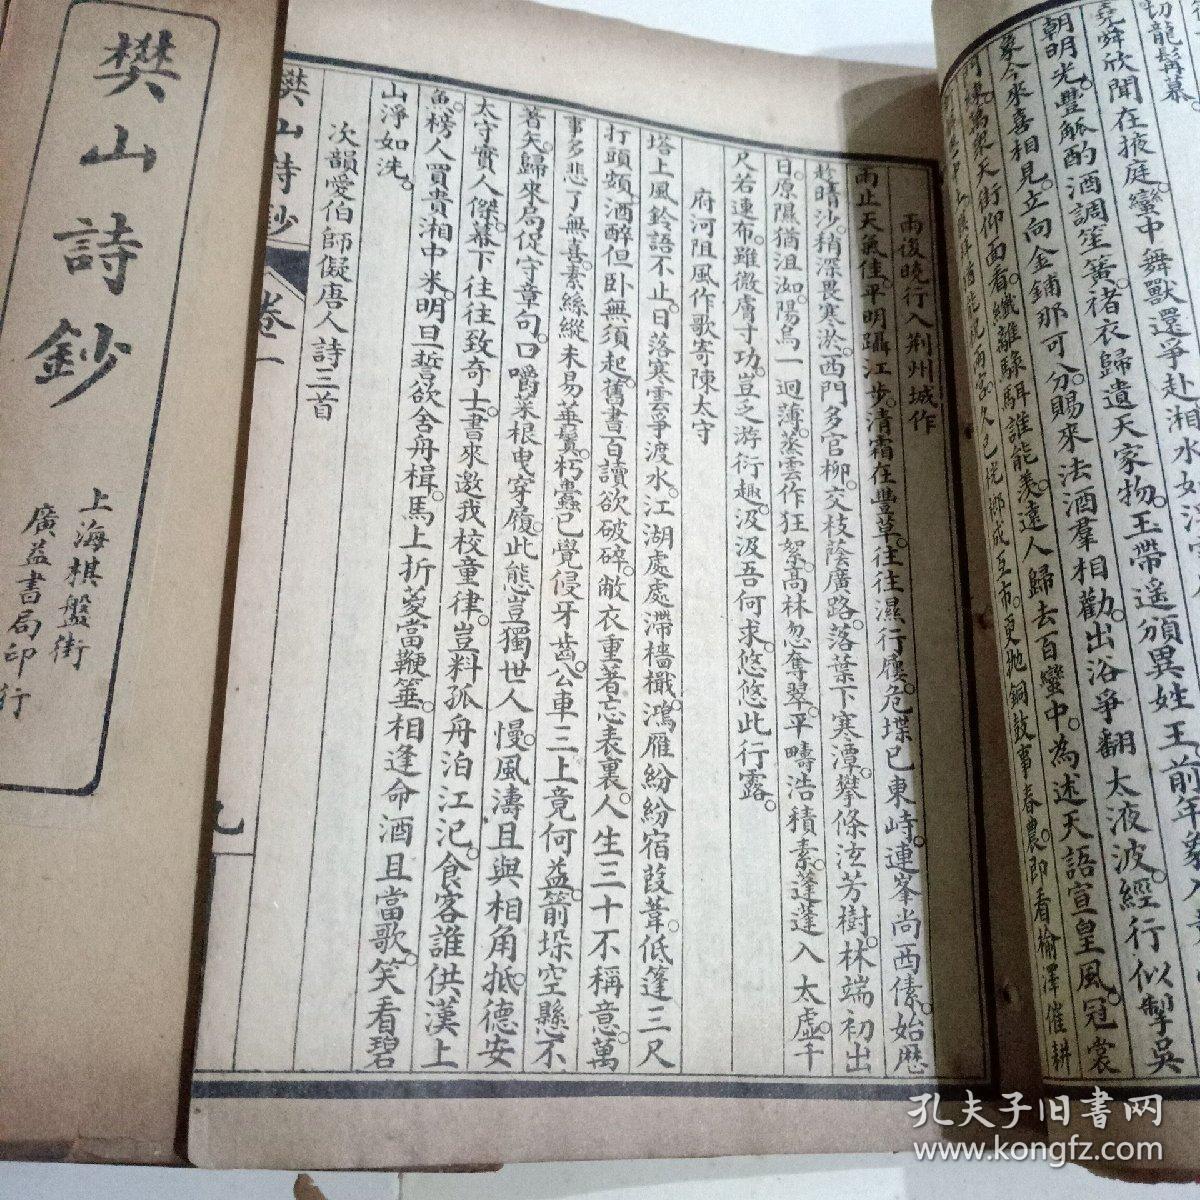 切龍髯慕
堯舜欣聞在掖庭蠻中舞獸還爭赴湘水
朝明光豐觚酌酒調笙簧褚衣歸遺天家物玉帶遙頒異姓王前年
篆今來喜相見立向金鋪那可分賜來法酒羣相勸出浴爭翻太液波經行似掣吳
萬衆天街仰面看纖離騄駬誰能羨遠人歸去百蠻中為述天語宣皇風冠裳
久已
成互市更馳銅鼓事春農即看榆澤催耕
雨後曉行入荆州城作
雨止天氣佳平明躡江步清霜在豐草往往濕行屨危堞已東峙連峯尚西傃始歷
趁晴沙稍深畏寒淤西門多官柳交枝蔭廣路落葉下寒潭攀條泫芳樹林端初出
日原隰猶沮洳陽烏一迴薄蒸雲作狂絮高林忽奪翠平疇浩積素蓬蓬入太虛千
尺若連布雖微膚寸功豈乏游衍趣汲汲吾何求悠悠此行露
府河阻風作歌寄陳太守
塔上風鈴語不止日落寒雲爭渡水江湖處處滯檣櫼鴻雁紛紛宿葭葦低篷三尺
打頭頻酒醉但卧無須起舊書百讀欲破碎敝衣重著忘表裏人生三十不稱意萬
事多悲了無喜素絲縱未易蒼鬢朽蠹已覺侵牙齒公車三上竟何益箭垛空懸不
著矢歸來局促守章句口嚼菜根曳穿履此態豈獨世人慢風濤且與相角抵德安
太守實人傑幕下往往致奇士書來邀我校童律豈料孤舟泊江汜食客誰供漢上
魚榜人買貴湘中米明旦誓欲舍舟楫馬上折菱當鞭箠相逢命酒且當歌笑看碧
山淨如洗
次韻愛伯師儗唐人詩三首
樊山詩鈔 卷一 九
樊山詩鈔
上海棋盤街
廣益書局印行
孔夫子旧書网
www.kongfz.com